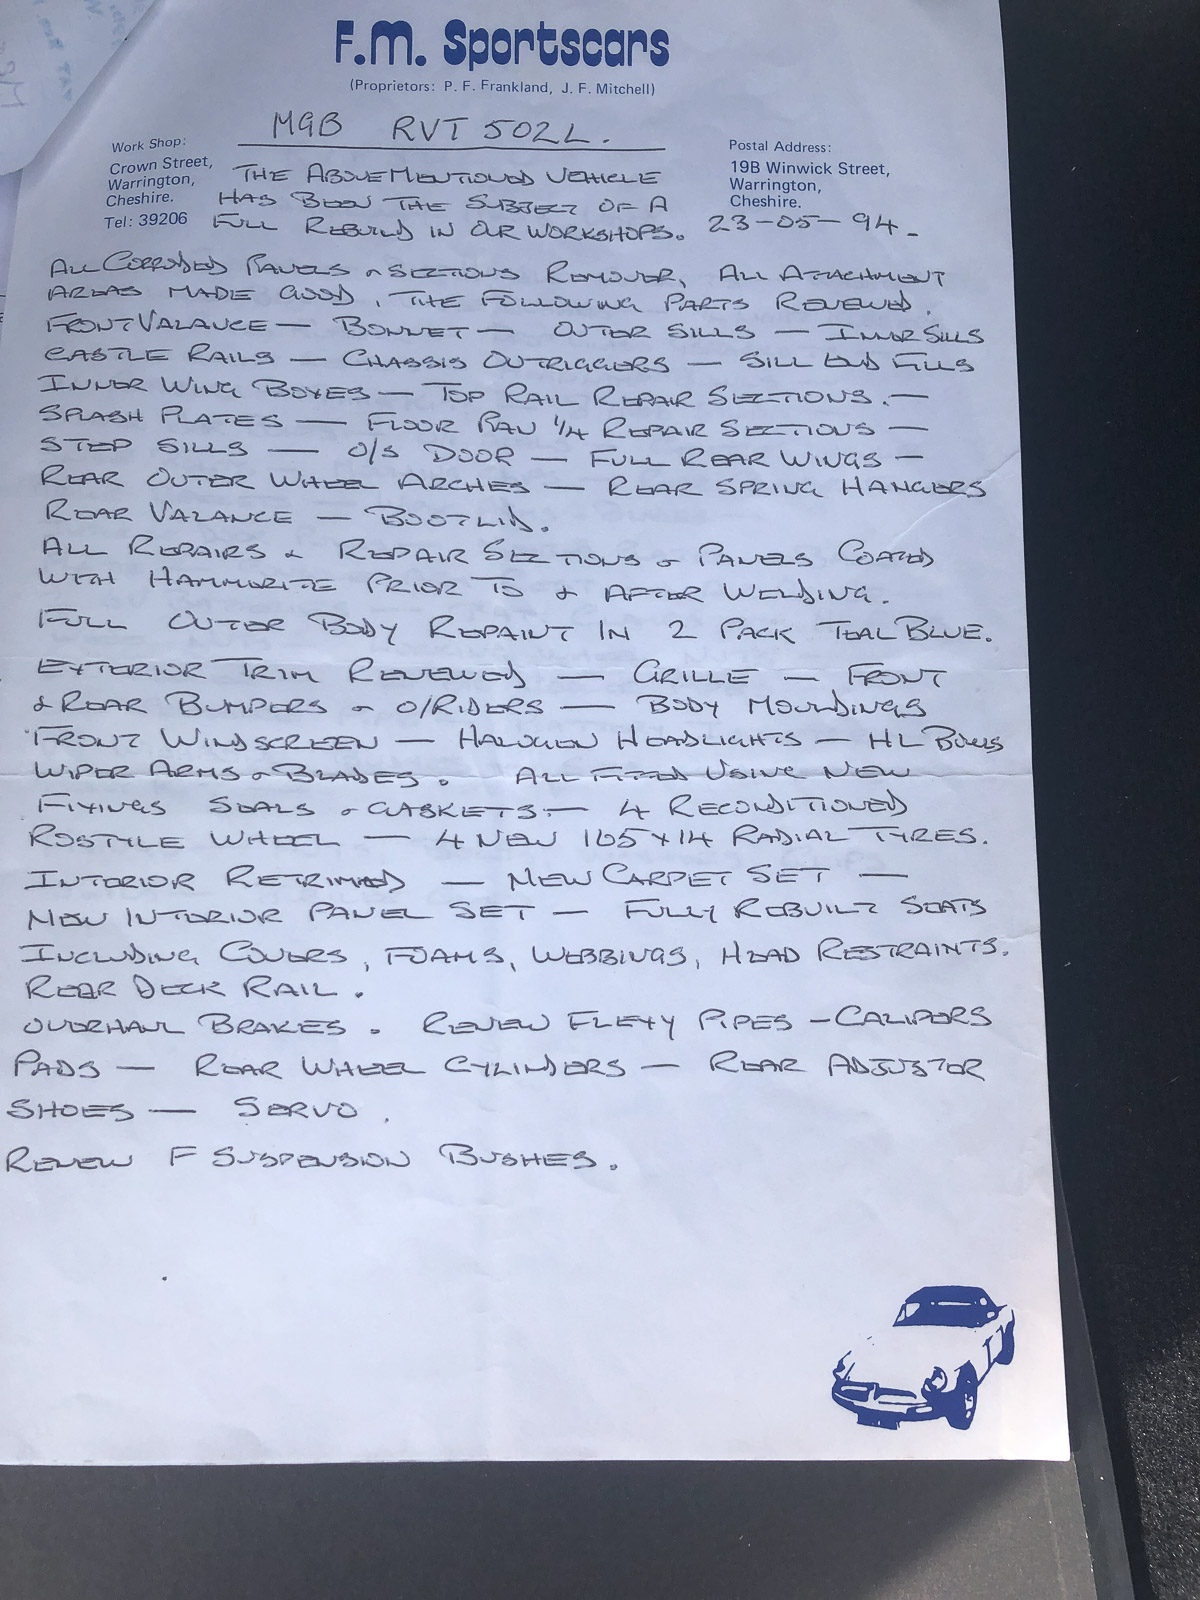 F.M. Sportscars
(Proprietors: P. F. Frankland, J. F. Mitchell)
MGB RVT 502L.
Work Shop:
Crown Street,
Warrington,
Cheshire.
Tel: 39206
Postal Address:
19B Winwick Street,
Warrington,
Cheshire.
THE ABOVE MENTIONED VEHICLE
HAS BEEN THE SUBJECT OF A
FULL REBUILD IN OUR WORKSHOPS. 23-05-94.
ALL CORRODED PANELS & SECTIONS REMOVED, ALL ATTACHMENT
AREAS MADE GOOD, THE FOLLOWING PARTS RENEWED.
FRONT VALANCE — BONNET — OUTER SILLS — INNER SILLS
CASTLE RAILS — CHASSIS OUTRIGGERS — SILL END FILLS
INNER WING BOXES — TOP RAIL REPAIR SECTIONS. —
SPLASH PLATES — FLOOR PAN 1/4 REPAIR SECTIONS —
STEP SILLS — O/S DOOR — FULL REAR WINGS —
REAR OUTER WHEEL ARCHES — REAR SPRING HANGERS
REAR VALANCE — BOOTLID.
ALL REPAIRS & REPAIR SECTIONS & PANELS COATED
WITH HAMMERITE PRIOR TO & AFTER WELDING.
FULL OUTER BODY REPAINT IN 2 PACK TEAL BLUE.
EXTERIOR TRIM RENEWED — GRILLE — FRONT
& REAR BUMPERS & O/RIDERS — BODY MOULDINGS
FRONT WINDSCREEN — HALOGEN HEADLIGHTS — HL BOWLS
WIPER ARMS & BLADES. ALL FITTED USING NEW
FIXINGS SEALS & GASKETS. — 4 RECONDITIONED
ROSTYLE WHEEL — 4 NEW 165 x 14 RADIAL TYRES.
INTERIOR RETRIMMED — NEW CARPET SET —
NEW INTERIOR PANEL SET — FULLY REBUILT SEATS
INCLUDING COVERS, FOAMS, WEBBINGS, HEAD RESTRAINTS.
REAR DECK RAIL.
OVERHAUL BRAKES. RENEW FLEXY PIPES — CALIPERS
PADS — REAR WHEEL CYLINDERS — REAR ADJUSTOR
SHOES — SERVO.
RENEW F SUSPENSION BUSHES.